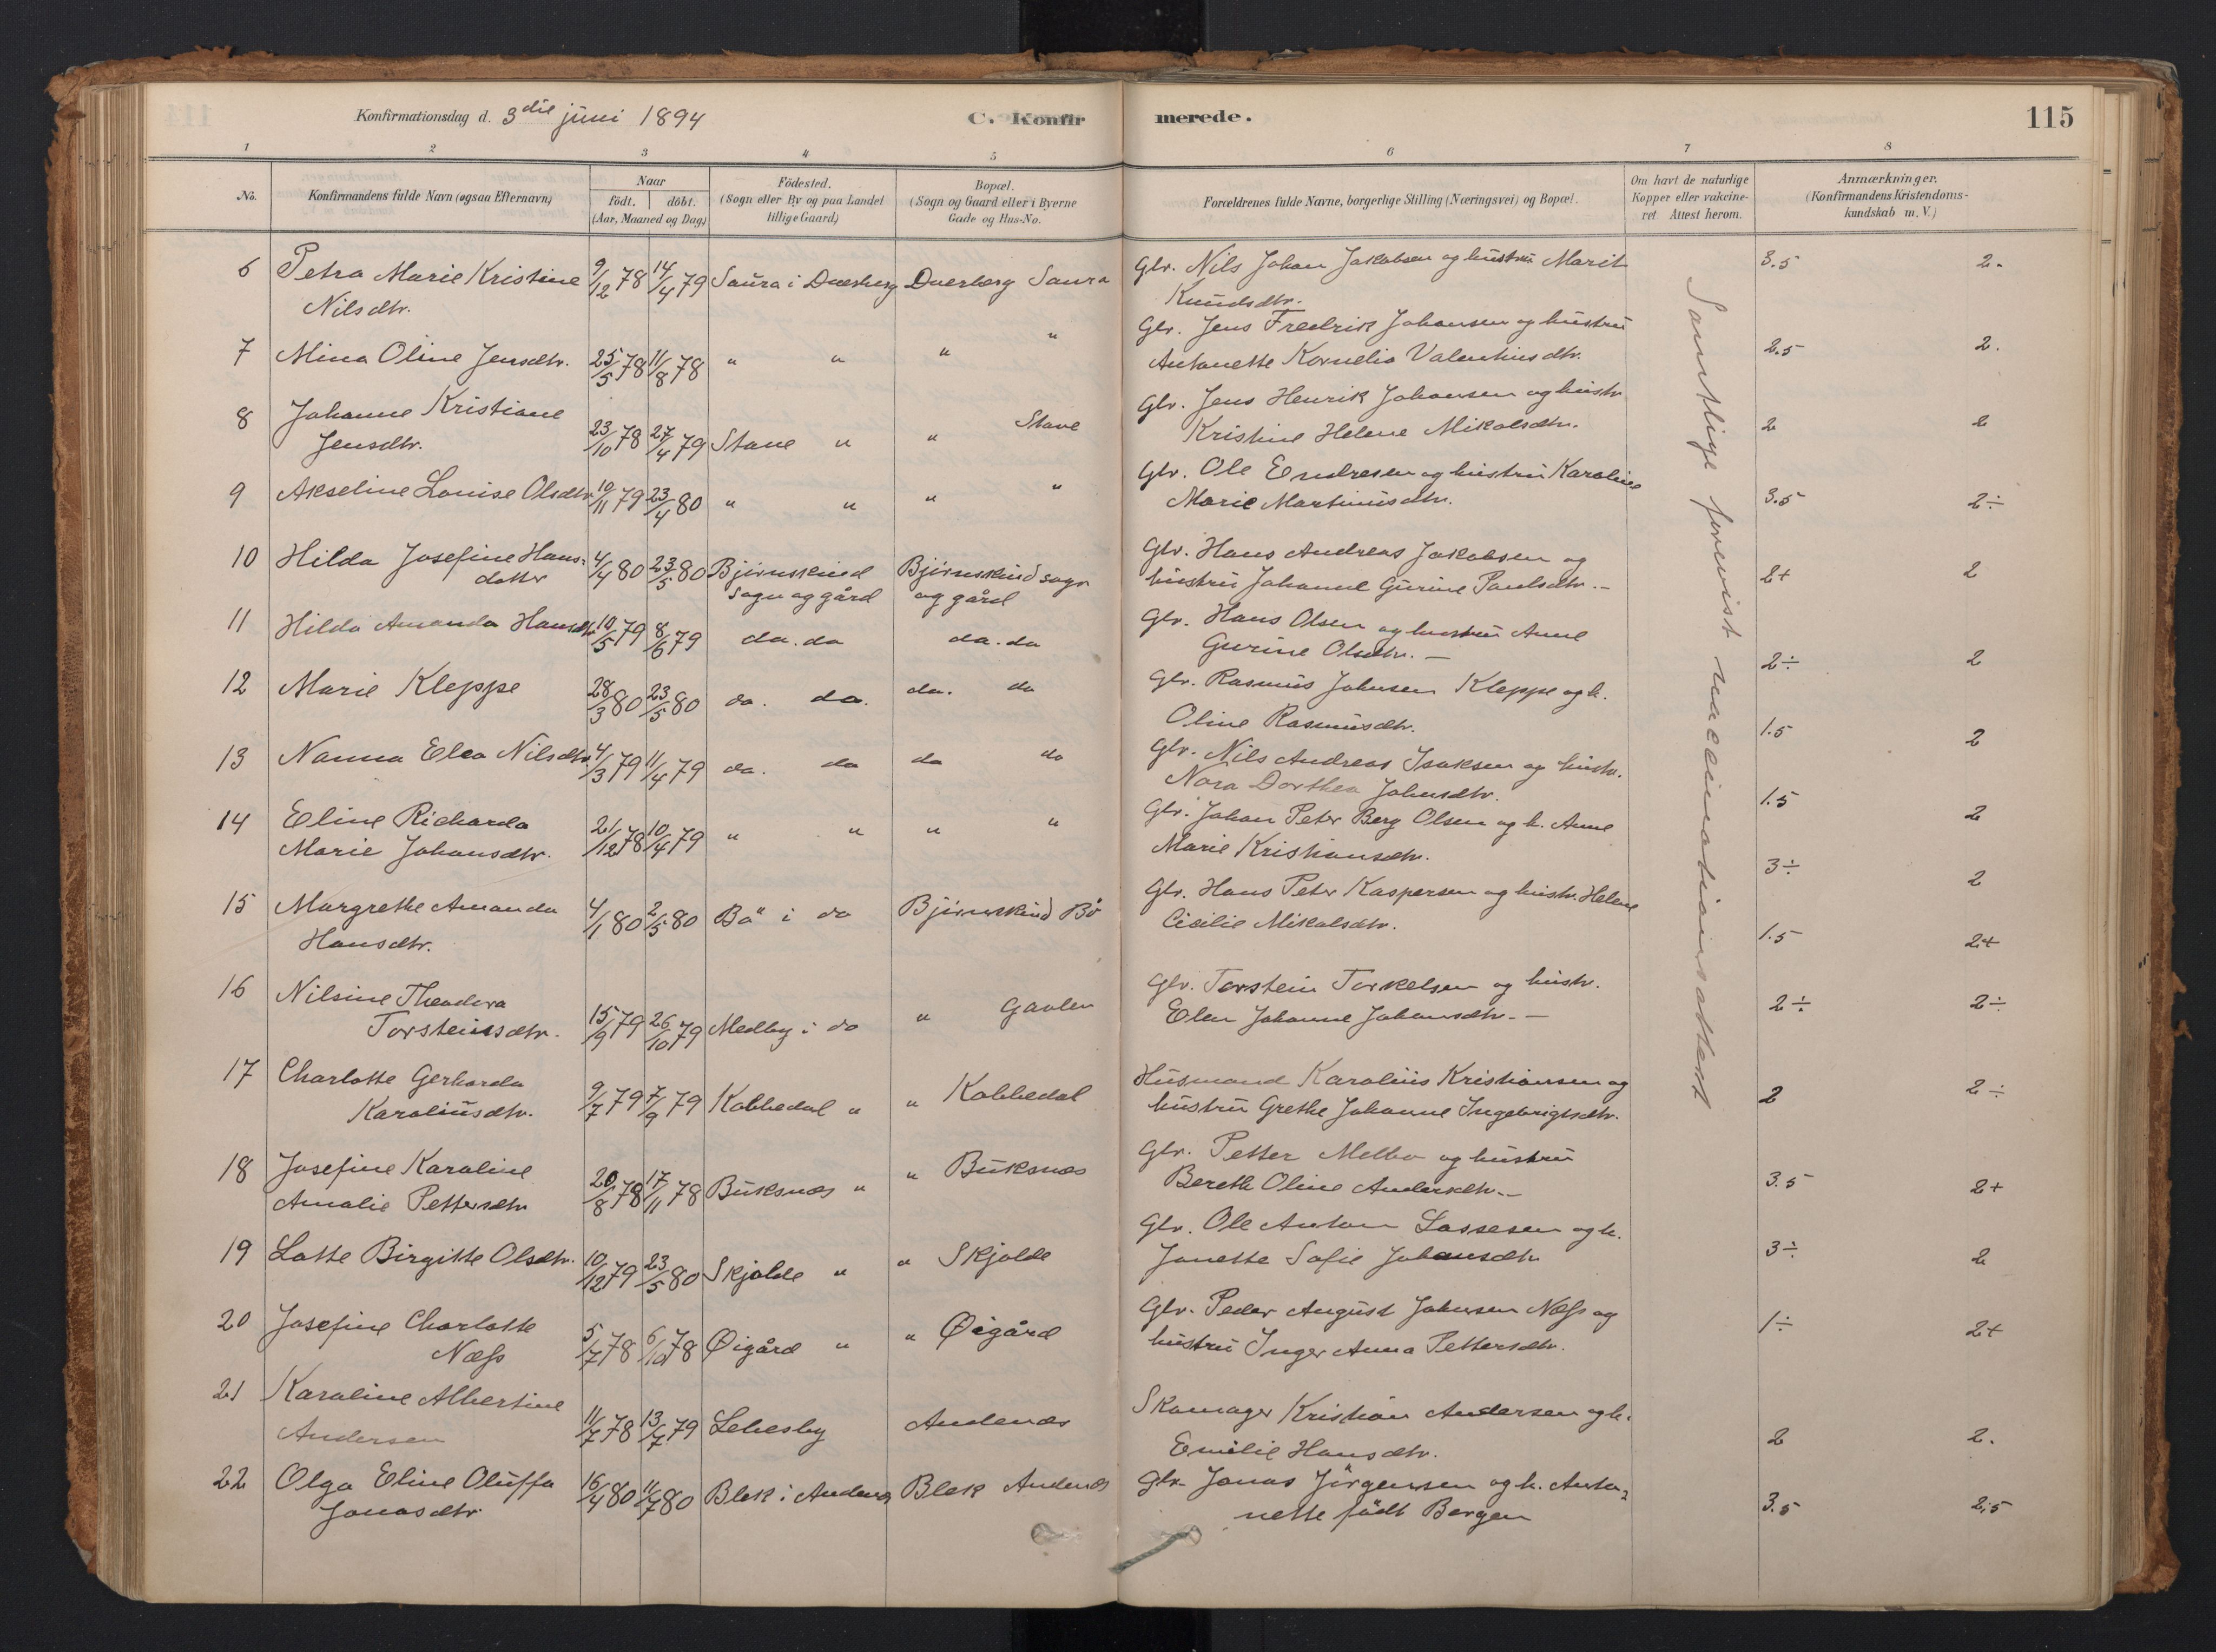 Konfirmationsdag d. 3die juni 1894
C. Konfir merede.
115
1 2 3 4 5 6 7 8
No.
Konfirmandens fulde Navn (ogsaa Efternavn)
Naar
födt. döbt.
(Aar, Maaned og Dag)
Födested.
(Sogn eller By og paa Landet
tillige Gaard)
Bopæl.
(Sogn og Gaard eller i Byerne
Gade og Hus-No.
Forældrenes fulde Navne, borgerlige Stilling (Næringsvei) og Bopæl.
Om havt de naturlige
Kopper eller vakcine-
ret Attest herom.
Anmærkninger.
(Konfirmandens Kristendoms-
kundskab m. V.)
6 Petra Marie Kristine 9/12 78 14/4 79 Saura i Dverberg Dverberg Saura Glv. Nils Johan Jakobsen og hustru Marit 3.5 2.
Nilsdtr. Knudsdtr.
7 Mina Oline Jensdtr. 25/5 78 11/8 78 " " " " Glv. Jens Fredrik Johansen og hustru 2.5 2.
Antonette Kornelia Valentinsdtr.
8 Johanne Kristiane 23/10 78 27/4 79 Stave " " Stave Glv. Jens Henrik Johansen og hustr 2 2
Jensdtr. Kristine Helene Mikalsdtr.
9 Akseline Louise Olsdtr 10/11 79 23/4 80 " " " " Glv. Ole Endresen og hustru Karoline 3.5 2÷
Marie Martinusdtr.
10 Hilda Josefine Hans- 4/4 80 23/5 80 Bjørnskind Bjørnskind sogn Glv. Hans Andreas Jakobsen og 2+ 2
datter sogn og gård og gård hustru Johanne Gurine Paulsdtr. -
11 Hilda Amanda Hansdtr 10/5 79 8/6 79 do. do do. do Glv. Hans Olsen og hustru Anne 2÷ 2
Gurine Olsdtr. -
12 Marie Kleppe 28/3 80 23/5 80 do. do. do. do Glv. Rasmus Johnsen Kleppe og h. 1.5 2
Oline Rasmusdtr.
13 Nanna Elea Nilsdtr. 4/3 79 11/4 79 do. do do do Glv. Nils Andreas Isaksen og hustr. 1.5 2
Nora Dorthea Johnsdtr.
14 Eline Richarda 21/12 78 10/4 79 " " " " Glv. Johan Peter Berg Olsen og h. Anne 3÷ 2
Marie Johansdtr. Marie Kristiansdtr.
15 Margrethe Amanda 4/1 80 2/5 80 Bø i do Bjørnskind Bø Glv. Hans Peter Kaspersen og hustr. Helene 1.5 2+
Hansdtr. Cicilie Mikalsdtr.
16 Nilsine Theodora 15/9 79 26/10 79 Medby i do " Gavlen Glv. Torstein Torkelsen og hustr. 2÷ 2÷
Torsteinsdtr. Elen Johanne Johansdtr. -
17 Charlotte Gerharda 9/7 79 7/9 79 Kobbedal " " Kobbedal Husmand Karolius Kristiansen og 2 2÷
Karoliusdtr. hustru Grethe Johanne Ingebrigtsdtr.
18 Josefine Karoline 20/8 78 17/11 78 Buksnæs " " Buksnæs Glv. Petter Melbo og hustru 3.5 2+
Amalie Pettersdtr Bereth Oline Andersdtr. -
19 Lotte Birgitte Olsdtr. 10/12 79 23/5 80 Skjolde " " Skjolde Glv. Ole Anton Lassesen og h. 3÷ 2
Janette Sofie Johansdtr
20 Josefine Charlotte 5/7 78 6/10 78 Øigård " " Øigård Glv. Peder August Johnsen Næss og 1÷ 2+
Næss hustru Inger Anna Pettersdtr.
21 Karoline Albertine 11/7 78 13/7 79 Lebesby Andenæs Skomager Kristian Andersen og h. 2 2.
Andersen Emilie Hansdtr.
22 Olga Eline Oluffa 16/4 80 11/7 80 Blek i Andenæs Blek Andenæs Glv. Jonas Jørgensen og h. Anto- 3.5 2.5
Jonasdtr nette født Bergen
Samtlige forevist vaccinationsattest